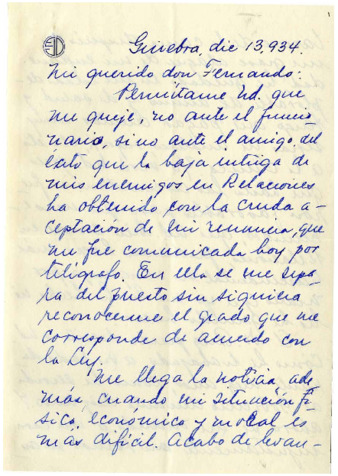 Ginebra, dic 13, 934.
Mi querido don Fernando:
Permítame Ud. que
me queje, no ante el funcio
nario, sino ante el amigo, del
exito que la baja intriga de
mis enemigos en Relaciones
ha obtenido con la cruda a-
ceptación de mi renuncia, que
me fue comunicada hoy por
telégrafo. En ella se me sepa
ra del puesto sin siquiera
reconocerme el grado que me
corresponde de acuerdo con
la Ley.
Me llega la noticia, ade
más, cuando mi situación fí
sico, económico y moral es
más difícil. Acabo de levan-